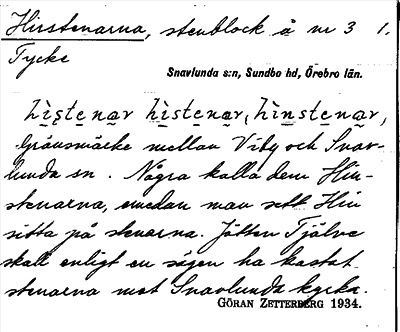 Hinstenarna, stenblock å nr 3 1.
Tycke
Snavlunda s:n, Sundbo hd, Örebro län.
hìstenar hìstenar, hìnstenar,
Gränsmärke mellan Viby och Snav-
lunda sn. Några kalla dem Hin-
stenarna, emedan man sett Hin
sitta på stenarna. Jätten Tjälve
skall enligt en sägen ha kastat
stenarna mot Snavlunda kyrka.
GÖRAN ZETTERBERG 1934.